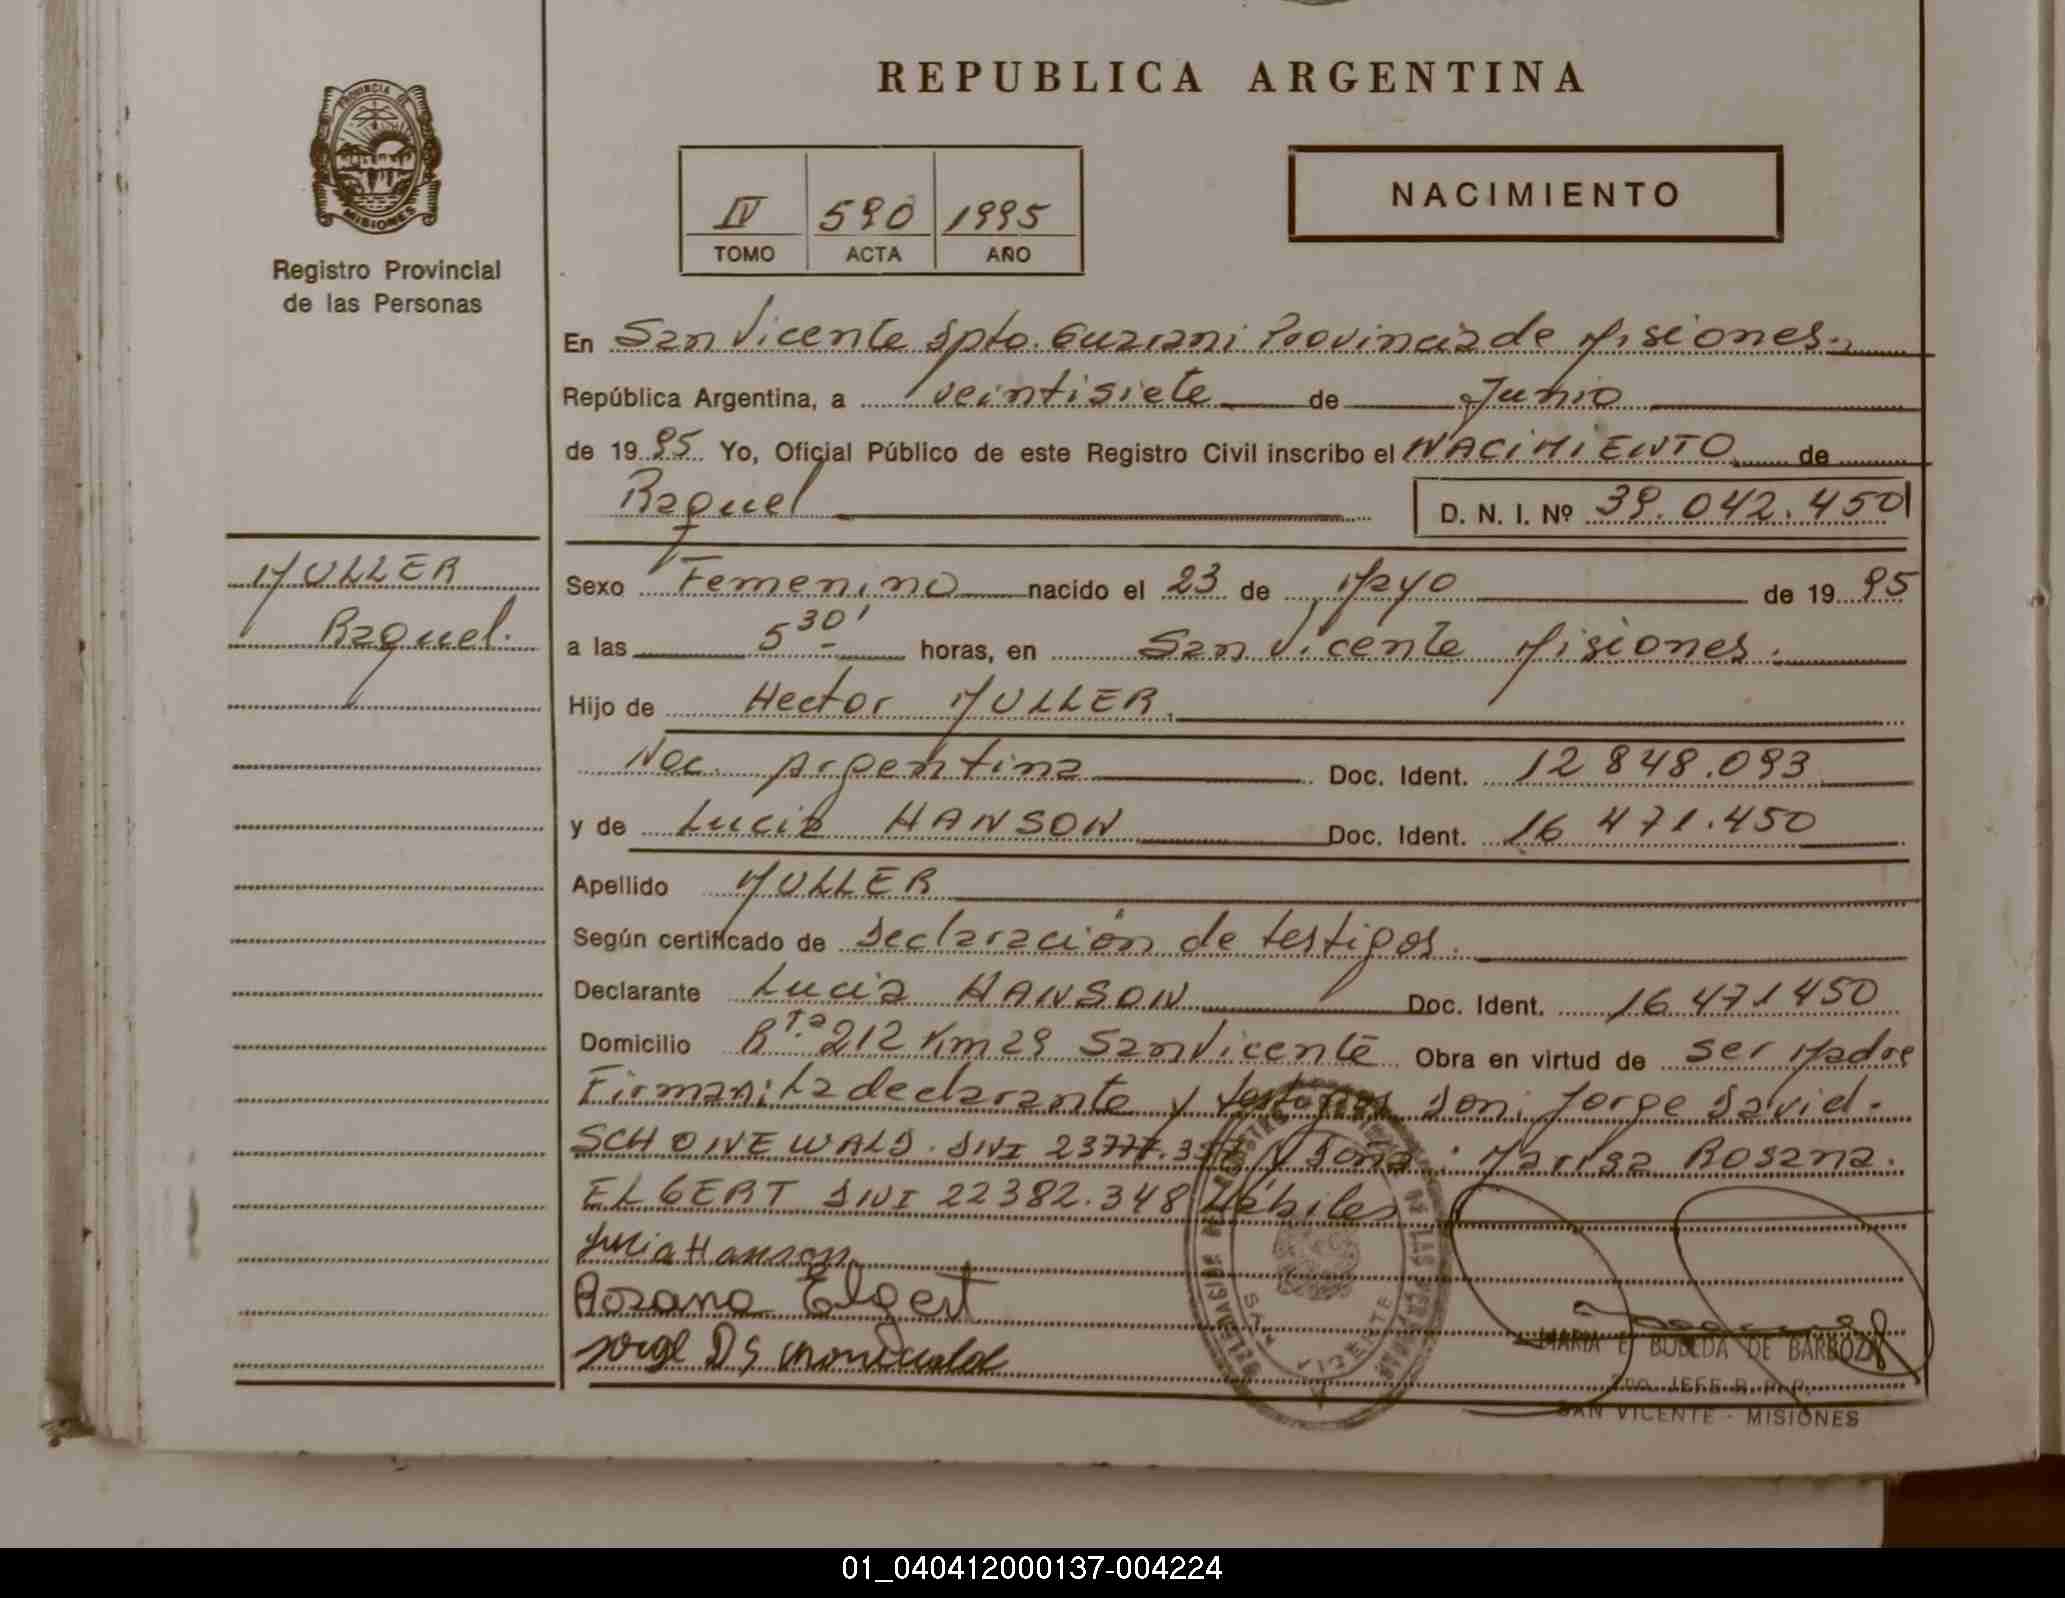 REPUBLICA ARGENTINA
PROVINCIA DE
MISIONES
Registro Provincial
de las Personas
IV 590 1995
TOMO ACTA AÑO
NACIMIENTO
En San Vicente Dpto. Guarani Provincia de Misiones.
República Argentina, a veintisiete de Junio
de 1995 Yo, Oficial Público de este Registro Civil inscribo el NACIMIENTO de
Raquel D. N. I. Nº 39.042.450
MULLER
Raquel.
Sexo Femenino nacido el 23 de Mayo de 1995
a las 5 30' horas, en San Vicente Misiones.
Hijo de Hector MULLER.
Nac. Argentina Doc. Ident. 12 848.093
y de Lucia HANSON Doc. Ident. 16 471.450
Apellido MULLER
Según certificado de Declaración de testigos.
Declarante Lucia HANSON Doc. Ident. 16 471 450
Domicilio Rta 212 Km 29 San Vicente Obra en virtud de ser Madre
Firman: La declarante y testigos Don: Jorge David.
SCHONEWALD. DNI y Doña: Marisa Rosana.
ELGERT DNI 22382.348 Hábiles
Lucia Hanson
Rosana Elgert
Jorge D
SAN VICENTE
MARIA E BOBEDA DE BARBOZA
JEFE R. P. P.
SAN VICENTE - MISIONES
01_040412000137-004224